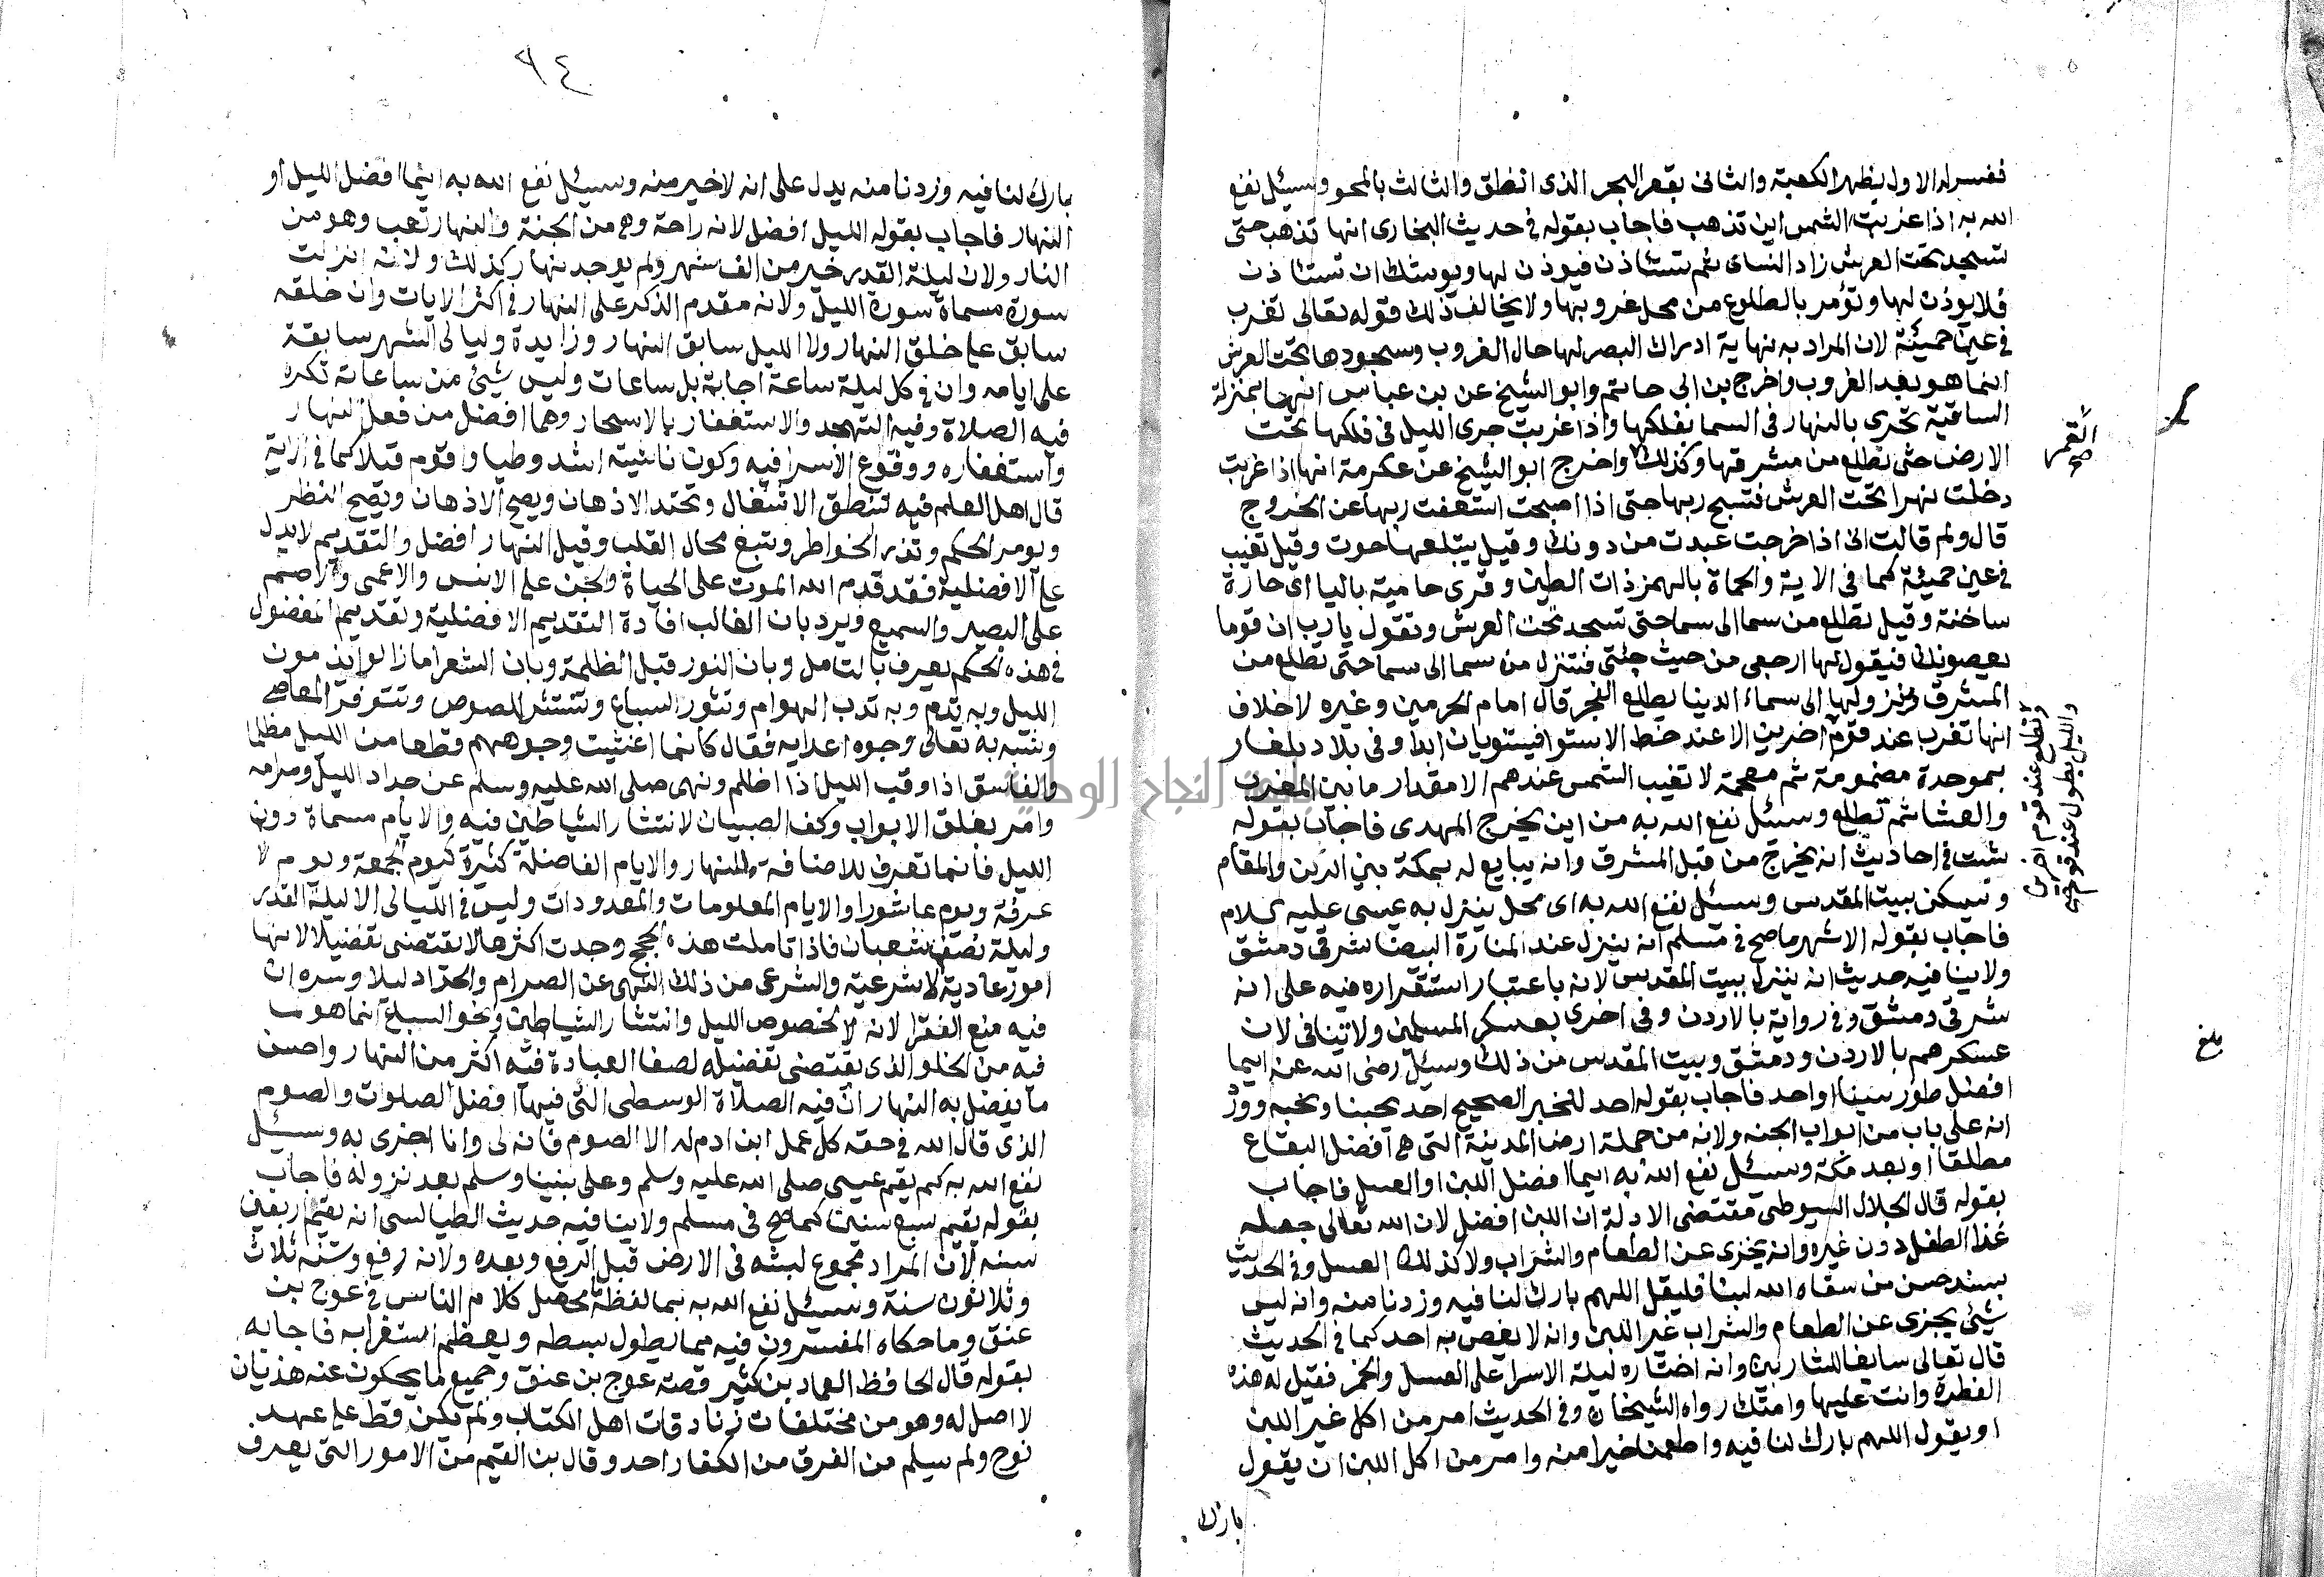 ففسر له الاول بظهر الكعبة والثانى بقعر البحر الذى انفلق والثالث بالمحو وسئل نفع
الله به اذا غربت الشمس اين تذهب فاجاب بقوله فى حديث البخارى انها تذهب حتى
تسجد تحت العرش زاد النساى ثم تستاذن فيوذن لها ويوشك ان تستاذن
فلا يوذن لها وتؤمر بالطلوع من محل غروبها ولا يخالف ذلك قوله تعالى تغرب
فى عين حميئة لان المراد به نهاية ادراك البصر لها حال الغروب وسجودها تحت العرش
انما هو بعد الغروب واخرج بن ابى حاتم وابو الشيخ عن بن عباس انها بمنزلة
الساقية تجرى بالنهار فى السما بفلكها واذا غربت جرى الليل فى فلكها تحت
الارض حتى تطلع من مشرقها وكذلك واخرج ابو الشيخ عن عكرمة انها اذا غربت
القمر
صح
دخلت نهرا تحت العرش فتسبح ربها حتى اذا اصبحت استعفت ربها عن الخروج
قال ولم قالت انى اذا خرجت عبدت من دونك وقيل يبتلعها حوت وقيل تغيب
فى عين حميئة كما فى الاية والحماة بالهمز ذات الطين وقرى حامية باليا اى حارة
ساخنة وقيل تطلع من سما الى سما حتى تسجد تحت العرش وتقول يا رب ان قوما
يعصونك فيقول لها ارجعى من حيث جئتى فتنزل من سما الى سما حتى تطلع من
المشرق وبنزولها الى سماء الدنيا يطلع الفجر قال امام الحرمين وغيره لا خلاف
انها تغرب عند قوم اخرين الا عند خط الاستوا فيستويان ابدا وفى بلاد بلغار
وتطلع عند قوم اخرين
والليل يطول عند قوم
بموحدة مضمومة ثم معجمة لا تغيب الشمس عندهم الا مقدار ما بين المغرب
والعشا ثم تطلع وسئل نفع الله به من اين يخرج المهدى فاجاب بقوله
ثبت فى احاديث انه يخرج من قبل المشرق وانه يبايع له بمكة بين الركن والمقام
ويسكن بيت المقدس وسئل نفع الله به اى محل ينزل به عيسى عليه السلام
فاجاب بقوله الاشهر ما صح فى مسلم انه ينزل عند المنارة البيضا شرقى دمشق
ولا ينافيه حديث انه ينزل ببيت المقدس لانه باعتبار استقراره فيه على انه
شرقى دمشق وفى رواية بالاردن وفى اخرى بعسكر المسلمين ولا تنافى لان
عسكرهم بالاردن ودمشق وبيت المقدس من ذلك وسئل رضى الله عنه ايما
بلغ
افضل طور سينا او احد فاجاب بقوله احد للخبر الصحيح احد يحبنا ونحبه وورد
انه على باب من ابواب الجنه ولانه من جملة ارض المدينة التى هى افضل البقاع
مطلقا او بعد مكة وسئل نفع الله به ايما افضل اللبن او العسل فاجاب
بقوله قال الجلال السيوطى مقتضى الادلة ان اللبن افضل لان الله تعالى جعله
غذا الطفل دون غيره وانه يجزى عن الطعام والشراب ولا كذلك العسل وفى الحديث
بسند حسن من سقاه الله لبنا فليقل اللهم بارك لنا فيه وزدنا منه وانه ليس
شيئ يجزى عن الطعام والشراب غير اللبن وانه لا يغص به احد كما فى الحديث
قال تعالى سايغا للشاربين وانه اختاره ليلة الاسرا على العسل والخمر فقيل له هذه
الفطرة وانت عليها وامتك رواه الشيخان وفى الحديث امر من اكل غير اللبن
ان يقول اللهم بارك لنا فيه واطعمنا خيرا منه وامر من اكل اللبن ان يقول
بارك
٩٤
بارك لنا فيه وزدنا منه يدل على انه لا خير منه وسئل نفع الله به ايما افضل الليل او
النهار فاجاب بقوله الليل افضل لانه راحة وهى من الجنة والنهار تعب وهو من
النار ولان ليلة القدر خير من الف شهر ولم يوجد نهار كذلك ولانه انزلت
سورة مسماة سورة الليل ولانه مقدم الذكر على النهار فى اكثر الايات وان خلقه
سابق على خلق النهار ولا الليل سابق النهار وزايدة وليالى الشهر سابقة
على ايامه وان فى كل ليلة ساعة اجابة بل ساعات وليس شيئ من ساعاته تكره
فيه الصلاة وفيه التهجد والاستغفار بالاسحار وهما افضل من فعل النهار
واستغفاره ووقوع الاسرا فيه وكون ناشيته اشد وطيا واقوم قيلا كما فى الاية
قال اهل العلم فيه تنطق الاشغال وتحتد الاذهان ويصح الاذهان ويصح النظر
ويومر الحكم وتدر الخواطر وتتبع مجال القلب وقيل النهار افضل والتقديم لا يدل
على الافضلية فقد قدم الله الموت على الحياة والجن على الانس والاعمى والاصم
على البصير والسميع ويرد بان الغالب افادة التقديم الافضلية وتقديم المفضول
فى هذه لحكم يعرف بالتامل وبان النور قبل الظلمة وبان الشعرا ما زالو يذمون
الليل وبه تذم وبه تدب الهوام وتثور السباع وتنتشر اللصوص وتتوفر المعاصى
وشبه به تعالى وجوه اعدايه فقال كانما اغشيت وجوههم قطعا من الليل مظلما
والغاسق اذا وقب الليل اذا اظلم ونهى صلى الله عليه وسلم عن جداد الليل وصرامه
وامر بغلق الابواب وكف الصبيان لانتشار الشياطين فيه والايام مسماة دون
الليل فانما تعرف بالاضافة للنهار والايام الفاضلة كثيرة كيوم الجمعة ويوم
عرفة ويوم عاشورا والايام المعلومات والمعدودات وليس فى الليالى الا ليلة القدر
وليلة نصف شعبان فاذا تاملت هذه الحجج وجدت اكثرها لا يقتضى تفضيلا لانها
امور عادية لا شرعية والشرعى من ذلك النهى عن الصرام والجداد ليلا وسره ان
فيه منع الفقرا لانه لا لخصوص الليل وانتشار الشياطين ونحو السباع انما هو لما
فيه من الخلو الذى يقتضى تفضيله لصفا العبادة فيه اكثر من النهار واحسن
ما يفضل به النهار ان فيه الصلاة الوسطى التى فيها افضل الصلوات والصوم
الذى قال الله فى حقه كل عمل ابن ادم له الا الصوم فانه لى وانا اجزى به وسئل
نفع الله به كم يقيم عيسى صلى الله عليه وسلم وعلى نبينا وسلم بعد نزوله فاجاب
بقوله يقيم سبع سنين كما صح فى مسلم ولا ينافيه حديث الطيالسى انه يقيم اربعين
سنه لان المراد مجموع لبثه فى الارض قبل الرفع وبعده ولانه رفع وسنه ثلاث
وثلاثون سنة وسئل نفع الله به بما لفظه ما محصل كلام الناس فى عوج بن
عنق وما حكاه المفسرون فيه مما يطول بسطه ويعظم استغرابه فاجابه
بقوله قال الحافظ العماد بن كثير قصة عوج بن عنق وجميع ما يحكون عنه هذيان
لا اصل له وهو من مختلفات زنادقات اهل الكتاب ولم يكن قط على عهد
نوح ولم يسلم من الغرق من الكفار احد وقال بن القيم من الامور التى يعرف
جامعة النجاح الوطنية